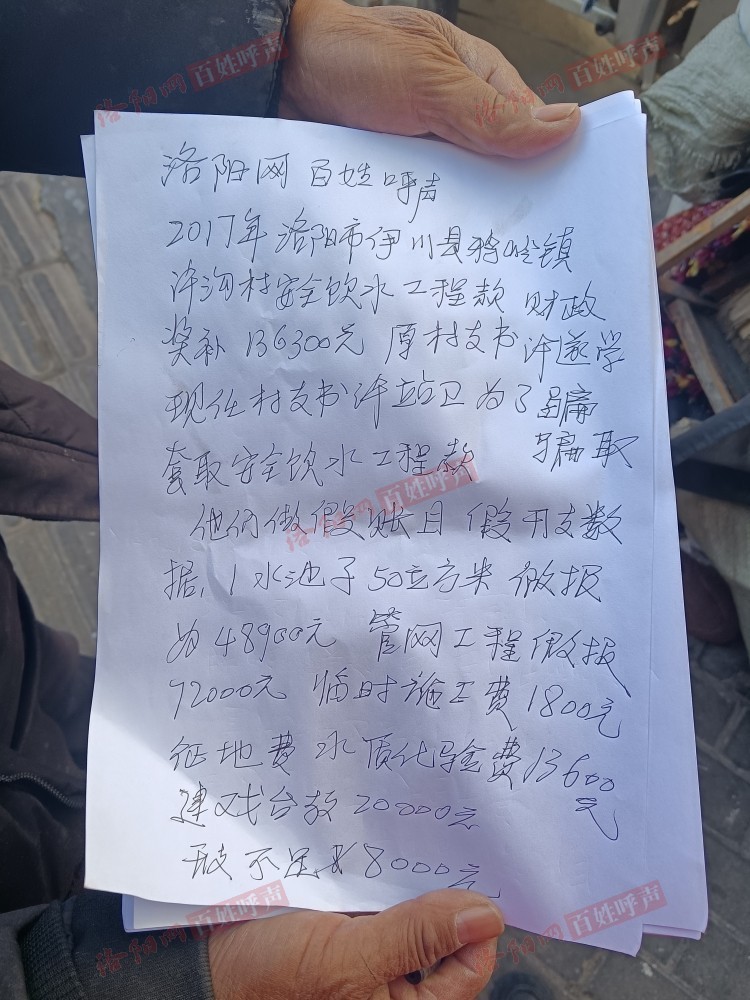 洛阳网 百姓呼声
2017年洛阳市伊川县鸦岭镇
许沟村安全饮水工程款 财政
奖补 136300元 原村支书 许遂学
现任村支书许站卫 为了骗
套取安全饮水工程款 骗取
他们做假账目 假开支数
据,1水池子50立方米 做报
为48900元 管网工程做报
72000元 临时施工费1800元
征地费 水质化验费13600元
建戏台款20000元
开支不足 8000元
洛阳网 百姓呼声
洛阳网 百姓呼声
洛阳网 百姓呼声
洛阳网 百姓呼声
洛阳网 百姓呼声